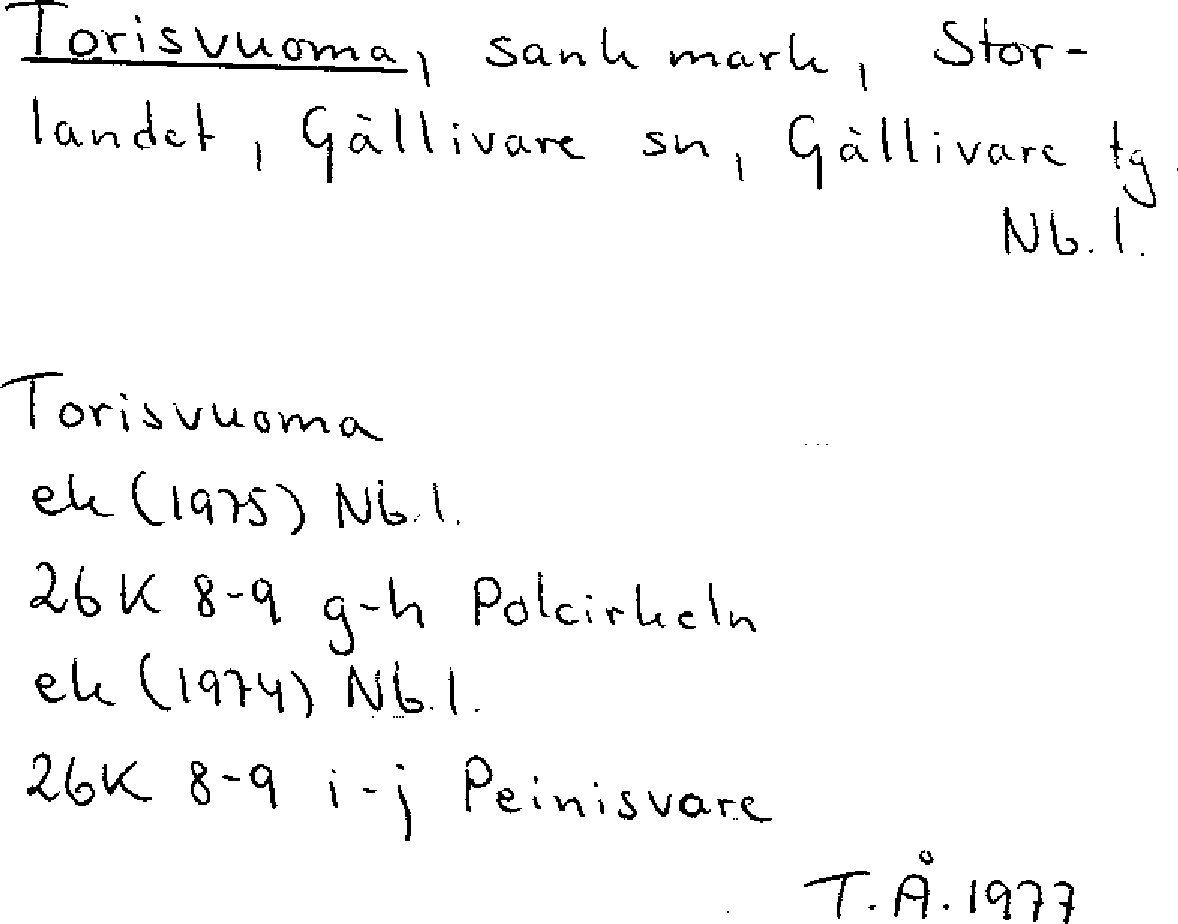 Torisvuoma, sank mark, Stor-
landet, Gällivare sn, Gällivare tg.
Nb. l.
Torisvuoma
ek (1975) Nb. l.
26K 8-9 g-h Polcirkeln
ek (1974) Nb. l.
26K 8-9 i-j Peinisvare
T. Å. 1977